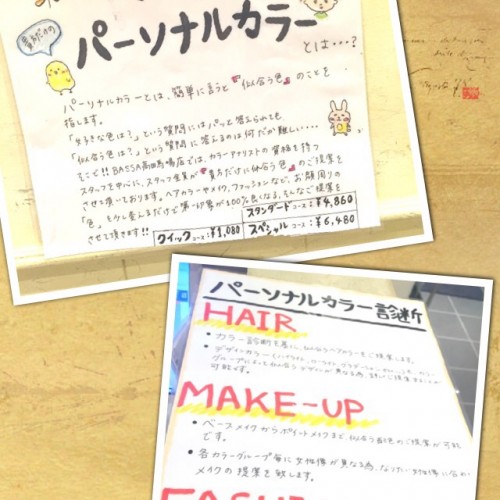 貴方だけの
パーソナルカラー
とは…?
パーソナルカラーとは、簡単に言うと『似合う色』のことを
指します。
「好きな色は?」という質問にはパッと答えられても
「似合う色は?」という質問に答えるのは何だか難しい…。
そこで!! BASSA高田馬場店では、カラーアナリストの資格を持つ
スタッフを中心に、スタッフ全員が『貴方だけに似合う色』のご提案を
させて頂いております。ヘアカラーやメイク、ファッションなど、お顔周りの
「色」を少し変えるだけで第一印象が100%良くなる、そんなご提案を
させて頂きます!!
スタンダードコース:¥4,860
クイックコース:¥1,080
スペシャルコース:¥6,480
パーソナルカラー診断
HAIR
・カラー診断を基に、似合うヘアカラーをご提案します。
・デザインカラー
グループによって似合うデザインが異なる為、
可能です。
MAKE-UP
・ベースメイクからポイントメイクまで、似合う配色のご提案が可能
です。
・各カラーグループ毎に女性像が異なる為、なりたい女性像に合わ
メイクの提案を致します。